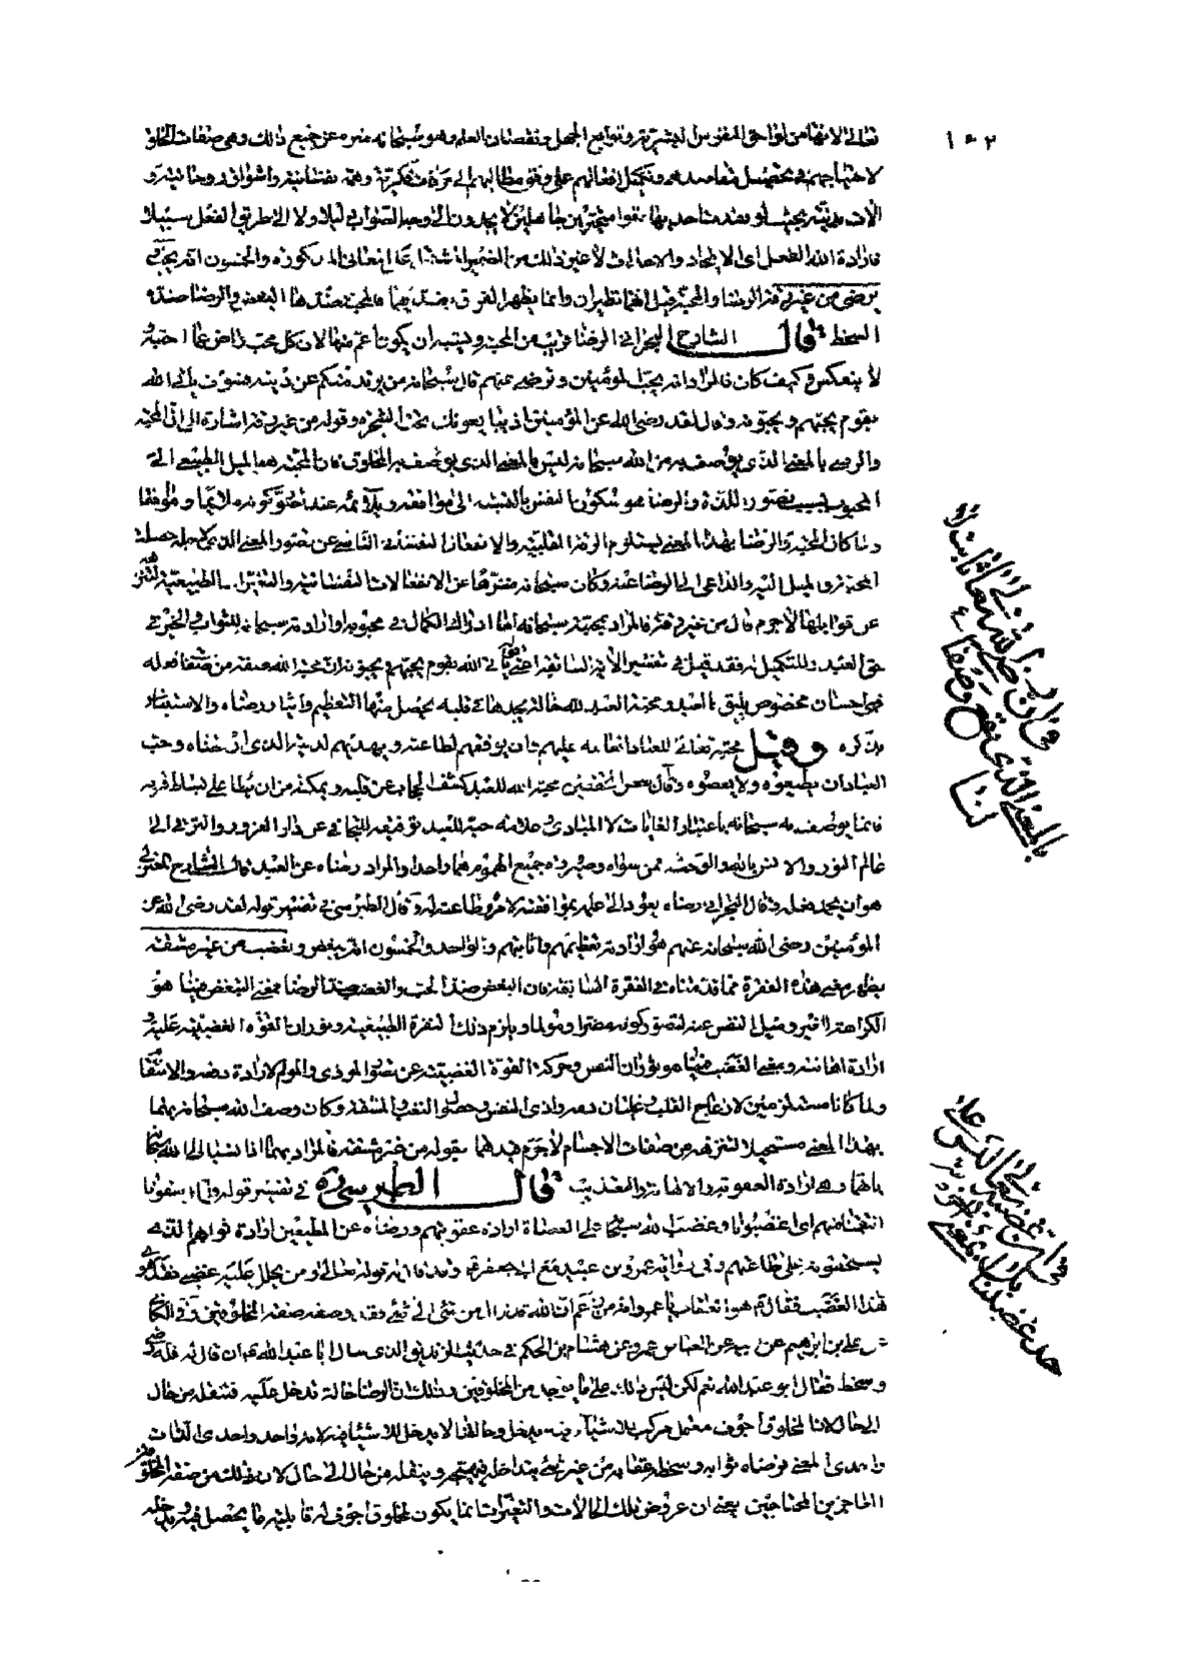 ١٠٢
تعالى لانها من لواحق النفوس البشرية وتوابع الجهل ونقصان العلم وهو سبحانه منزه عن جميع ذلك وهي صفات الخلق
لاحتياجهم في تحصيل مقاصدهم وتكميل افعالهم على وفق مطالبهم الى حركات فكرية وهمة نفسانية واشواق روحانية و
الات بدنية بحيث لو فقد احديها بقوا متحيرين جاهلين لا يجدون الى وجه الصواب دليلا ولا الى طريق الفعل سبيلا
فارادة الله الفعل اى الايجاد والاحداث لا غير ذلك من الضمير المذكورة والخمسون انه يحب و
يرضى من غير رقة الرضا والمحبة قيل انهما نظيران وانما يظهر الفرق بضديهما فالمحبة ضدها البغض والرضا ضده
السخط قال الشارح البحراني الرضا قريب من المحبة ويشبه ان يكون اعم منها لان كل محب راض عما احبه و
لا ينعكس وكيف كان فالمراد انه يحب المؤمنين ويرضى عنهم قال سبحانه من يرتد منكم عن دينه فسوف يأتى الله
بقوم يحبهم ويحبونه وقال لقد رضى الله عن المؤمنين اذ يبايعونك تحت الشجرة وقوله من غير رقة اشارة الى ان المحبة
والرضا بالمعنى الذى يوصف به من الله سبحانه ليس بالمعنى الذى يوصف به المخلوق فان المحبة هنا الميل الطبيعى الى
المحبوب بسبب تصور اللذة والرضا هو سكون النفس بالنسبة الى موافقه وملائمه عند تصور كونه ملائما وموافقا
ولما كان المحبة والرضا بهذا المعنى يستلزم الرقة القلبية والانفعال النفسانى الناشى عن تصور المعنى الذى لاجله حصلت
المحبة والميل اليه والداعى الى الرضا عنه وكان سبحانه منزها عن الانفعالات النفسانية والتغيرات الطبيعية لتنزهه
عن قوابلها لاجرم قال من غير رقة فالمراد بمحبته سبحانه اما ادراك الكمال فى محبوبه او ارادته سبحانه للثواب والخير فى
حق العبد والتكميل له فقد قيل فى تفسير الاية السابقة اعنى قوله فسوف يأتى الله بقوم يحبهم ويحبونه ان محبة الله صفة من صفات فعله
فهى احسان مخصوص يليق بالعبد ومحبة العبد لله حالة يجدها فى قلبه يحصل منها التعظيم وايثار رضاه والاستيناس
بذكره وقيل محبته تعالى للعباد انعامه عليهم بان يوفقهم لطاعته ويهديهم لدينه الذى ارتضاه وحب
العباد ان يطيعوه ولا يعصوه وقال بعض المحققين محبة الله للعبد كشف الحجاب عن قلبه وتمكينه من ان يطأ على بساط قربه
فانما يوصف به سبحانه باعتبار الغايات لا المبادى وعلامة حبه للعبد توفيقه للتجافى عن دار الغرور والترقى الى
عالم النور والانس بالله والوحشة ممن سواه وصيرورة جميع الهموم هما واحدا والمراد برضاه عن العبد قال الشارح المعتزلى
هو ان يحمد فعله وقال البحرانى رضاه يعود الى علمه بموافقته لامره وطاعته له وقال الطبرسى فى تفسير قوله لقد رضى الله عن
المؤمنين رضى الله سبحانه عنهم هو ارادته تعظيمهم واثابتهم والواحد والخمسون انه يبغض ويغضب من غير مشقة
يظهر معنى هذه الفقرة مما قدمناه فى الفقرة السابقة فان البغض ضد الحب والغضب ضد الرضا فمعنى البغض فينا هو
الكراهة للغير وميل النفس عنه لتصور كونه مضرا ومولما ويلزم ذلك النفرة الطبيعية وثوران القوة الغضبية عليه و
ارادة اهانته ومعنى الغضب فينا هو ثوران النفس وحركة القوة الغضبية عن تصور الموذى والمولم لارادة دفعه والانتقام منه
ولما كانا مستلزمين لانزعاج القلب وغليان دمه واذى النفس وحصول التعب والمشقة وكان وصف الله سبحانه بهما
بهذا المعنى مستحيلا لتنزهه من صفات الاجسام لاجرم قيدهما بقوله من غير مشقة فالمراد بهما اذا نسبا الى الله سبحانه
غايتهما وهى ارادة العقوبة والاهانة والتعذيب قال الطبرسى ره فى تفسير قوله فلما اسفونا
انتقمنا منهم اى اغضبونا وغضب الله سبحانه على العصاة ارادة عقوبتهم ورضاه عن المطيعين ارادة ثوابهم الذى
يستحقونه على طاعتهم وفى رواية عمرو بن عبيد مع ابى جعفر ع وقد قال له قوله تعالى ومن يحلل عليه غضبى فقد هوى ما
هذا الغضب فقال ع هو العقاب يا عمرو انه من زعم ان الله قد زال من شئ الى شئ فقد وصفه صفة المخلوقين وفى الكافى
عن على بن ابراهيم عن ابيه عن العباس بن عمرو عن هشام بن الحكم فى حديث الزنديق الذى سال ابا عبد الله ع ان قال له فله رضى
وسخط فقال ابو عبد الله نعم لكن ليس ذلك على ما يوجد من المخلوقين وذلك ان الرضا حالة تدخل عليه فتنقله من حال
الى حال لان المخلوق اجوف معتمل مركب للاشياء فيه مدخل وخالقنا لا مدخل للاشياء فيه لانه واحد واحدى الذات
واحدى المعنى فرضاه ثوابه وسخطه عقابه من غير شئ يتداخله فيهيجه وينقله من حال الى حال لان ذلك من صفة المخلوقين
العاجزين المحتاجين يعنى ان عروض تلك الحالات والتغيرات انما يكون لمخلوق اجوف له قابلية ما يحصل فيه ويدخله